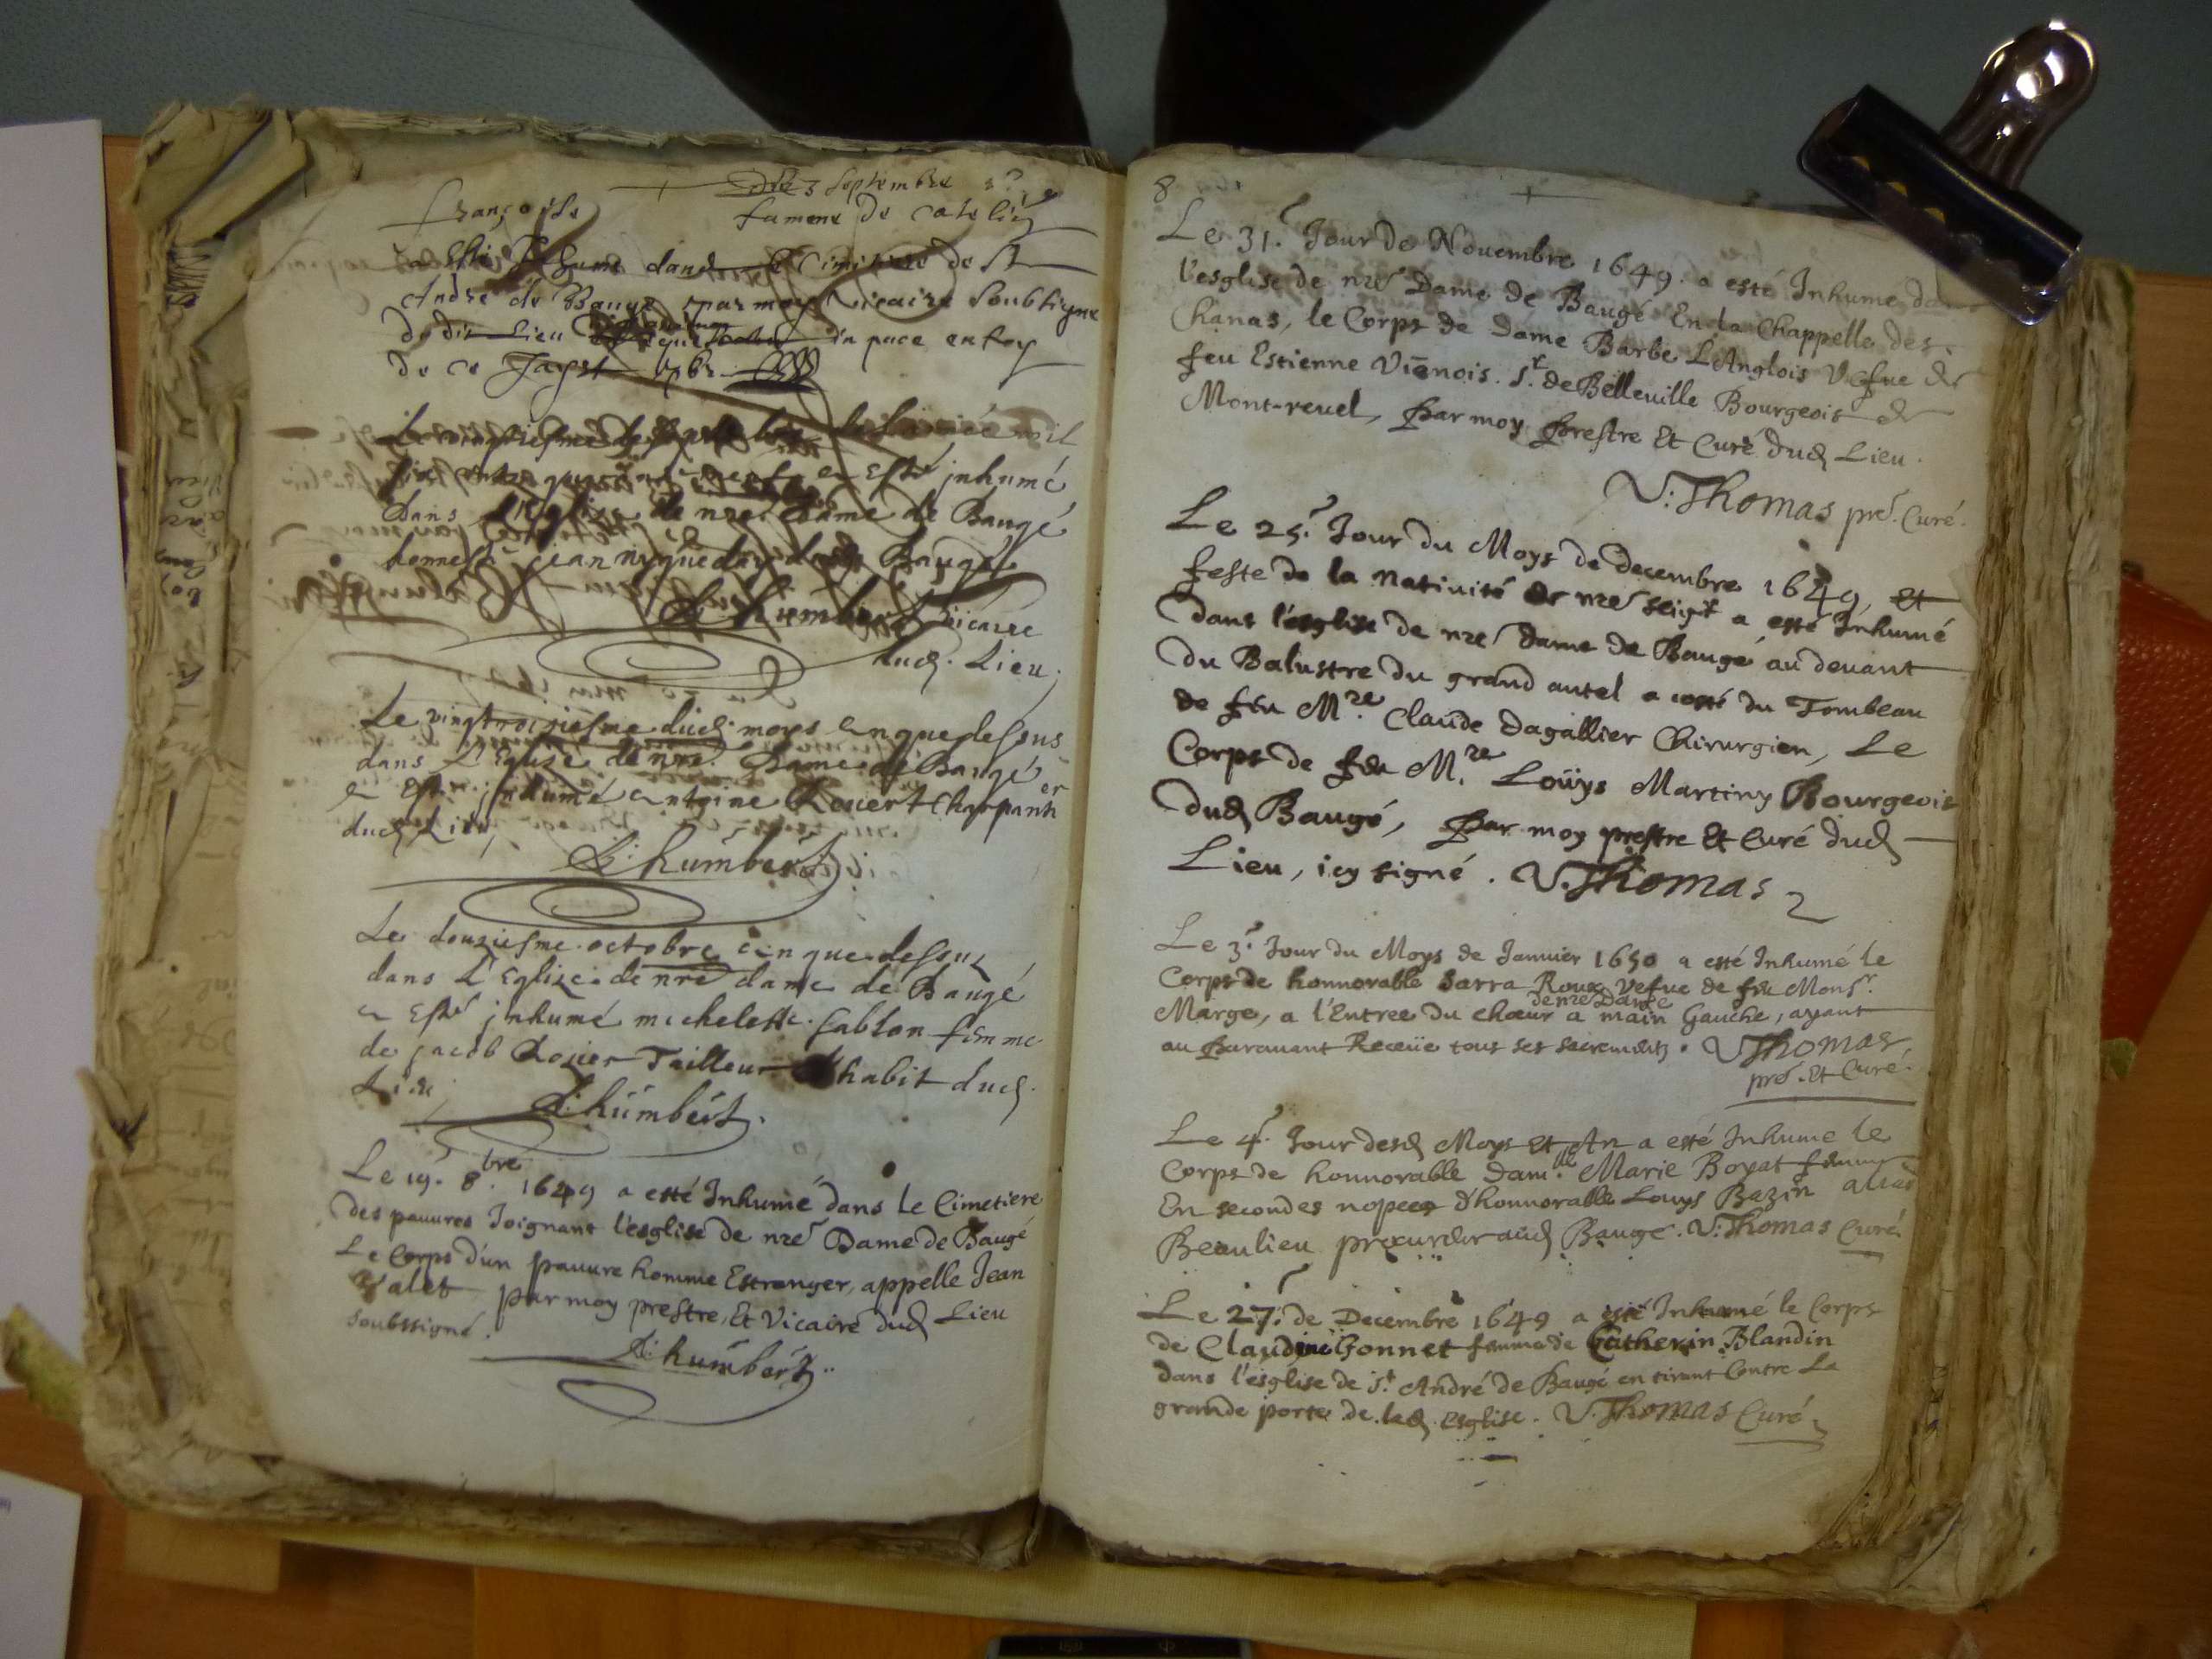 septembre
françoise famme de
a esté Inhume dans le Cimitiere de St
André de Baugé par moy vicaire soubsigne
du dit Lieu in pace en foy
de ce
Le vingtiesme de mil
six cents quarante neufz a Esté jnhumé
dans L'Eglize de nre. Dame de Baugé
honneste jean Baugé
L: humbert vicaire
dud. Lieu;
Le vingtroiziesme dud. moys an que dessus
dans L'Eglize de nre. Dame de Baugé
a Esté jnhumé antoine Reuert Charpantier
dud Lieu
L: humbert
Le douziesme octobre an que dessus
dans L'Eglize de nre dame de Baugé
a Esté jnhumé michelette sablon femme
de jacob Rosier Tailleur d'habit dud.
Lieu
L: humbert.
Le 19. 8.bre 1649 a esté Inhumé dans le Cimetiere
des pauures Joignant l'esglise de nre Dame de Baugé
Le Corps d'un pauure homme Estranger, appelle Jean
Valet par moy prestre, Et Vicaire dud Lieu
soubssigné.
L: humbert..
8
Le 31.e Jour de Nouembre 1649. a esté Inhume dans
l'esglise de nre Dame de Baugé En la Chappelle des
Chanas, le Corps de Dame Barbe L'Anglois Vefue de
feu Estienne Viēnois. Sr. de Belleuille Bourgeois de
Mont-reuel, par moy prestre Et Curé dud Lieu.
V: Thomas pre. Curé.
Le 25.e Jour du Moys de decembre 1649, et
feste de la Natiuité de nre seigr a esté Inhumé
dans l'esglise de nre dame de Baugé au deuant
du Balustre du grand autel a costé du Tombeau
de feu M.re Claude Dagallier Chirurgien, Le
Corps de feu M.re Loüys Martiny Bourgeois
dud Baugé, par moy prestre Et Curé dud
Lieu, icy signé. V. Thomas
Le 3.e Jour du Moys de Januier 1650 a esté Inhumé le
Corps de honnorable Sarra Roux Vefue de feu Monsr.
Marge, a l'Entree du chœur de nre Dame a main Gauche, ayant
au parauant Receüe tous ses sacrements. V Thomas,
pre. Et Curé.
Le 4.e Jour desd Moys Et An a esté Inhume le
Corps de honnorable Dam.lle Marie Boyat femme
En secondes nopces d'honnorable Louys Bazin alias
Beaulieu procureur aud Baugé. V: Thomas Curé.
Le 27.e de Decembre 1649 a esté Inhumé le Corps
de Claudine Bonnet femme de Catherin Blandin
dans l'esglise de St. André de Baugé en tirant Contre La
grande porte de lad. esglise. V. Thomas Curé